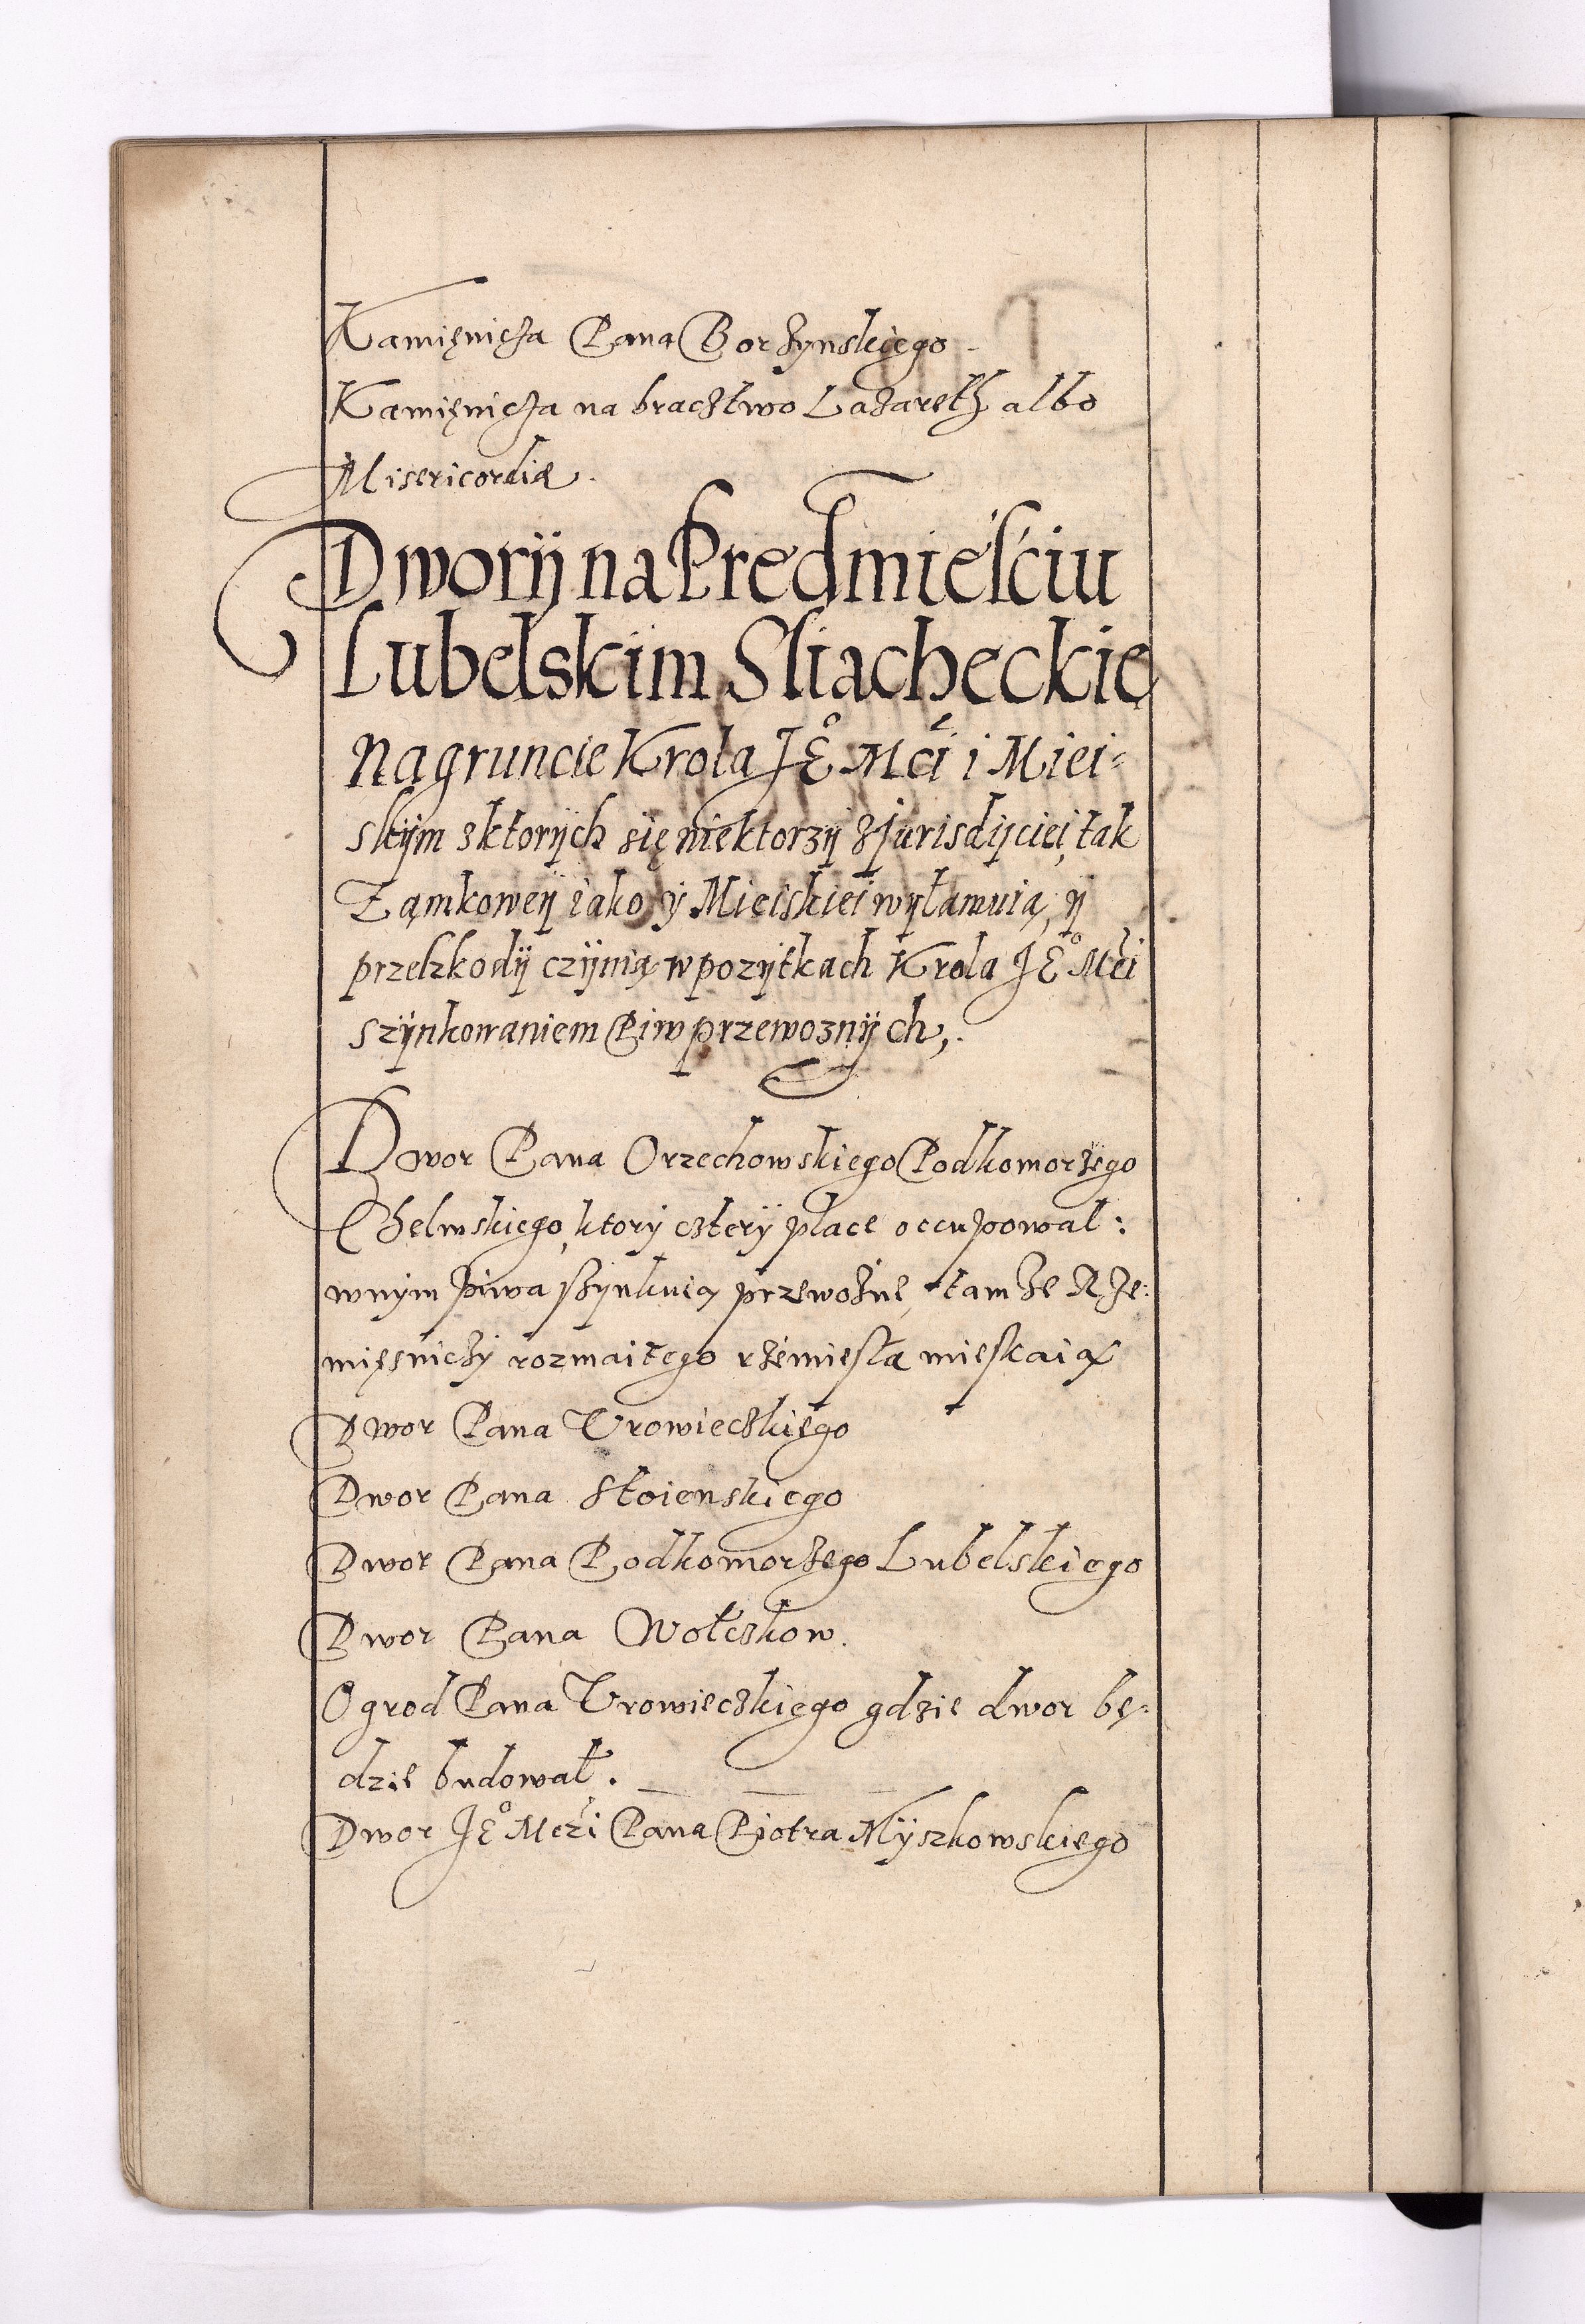 Kamięnicza Pana Borzynskiego
Kamięnicza na braczstwo Lazareth albo
Misericordiæ.
Dworÿ na Predmieściu
Lubelskim Sliacheckie
Na gruncie Krola JEº Mći i Miei=
skÿm z ktorÿch się niektorzÿ z Jurisdÿciei, tak
Zamkoweÿ iako ÿ Mieiskiei wÿłamuią, ÿ
przeszkodÿ czÿnią w pozÿtkach Krola JEº Mći
szÿnkowaniem Piw przewoznÿch,.
Dwor Pana Orzechowskiego Podkomorzego
Chelmskiego, ktorÿ czterÿ place occupowal:
w nÿm piwa szynkuią przewozne, tamze Rze:
mięsniczy rozmaitego rzemiesla mieskaią
Dwor Pana Urowieczkiego
Dwor Pana Stoienskiego
Dwor Pana Podkomorzego Lubelskiego
Dwor Pana Wołczkow.
Ogrod Pana Urowieczkiego gdzie dwor bę:
dzie budował.
Dwor JEº Mczi Pana Piotra Mÿszkowskiego